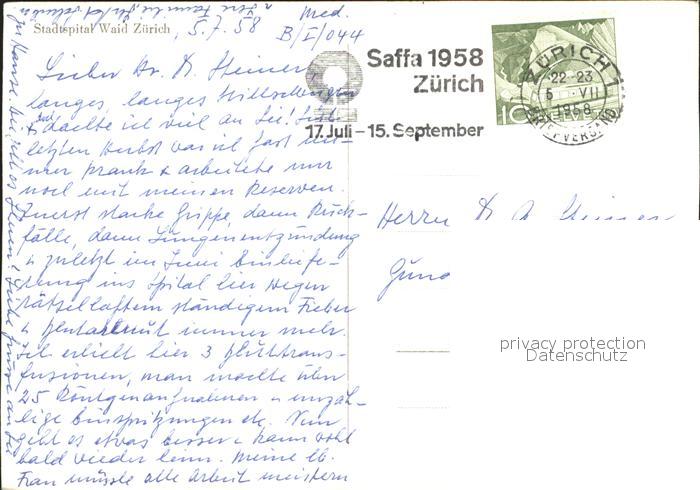 Stadtspital Waid Zürich, 5.7.58
Med.
B/I/044
Lieber Dr. A. Steiner!
langes, langes Stillschweigen
& dachte ich viel an Sie! Seit
letzten Herbst war ich fast im-
mer krank & arbeitete nur
noch mit meinen Reserven.
Zuerst starke Grippe, dann Rück-
fälle, dann Lungenentzündung
& zuletzt im Juni Einliefe-
rung ins Spital hier wegen
rätselhaftem ständigem Fieber
& Blutarmut immer mehr.
Ich erhielt hier 3 Bluttrans-
fusionen, man machte über
25 Röntgenaufnahmen & unzäh-
lige Einspritzungen etc. Nun
geht es etwas besser & kann wohl
bald wieder heim. Meine lb.
Frau musste alle Arbeit meistern
zu Hause.
Saffa 1958
Zürich
17. Juli – 15. September
ZÜRICH 1
22-23
5 VII
1958
BRIEFVERSAND
10 HELVETIA
Herrn Dr A Steiner
privacy protection
Datenschutz